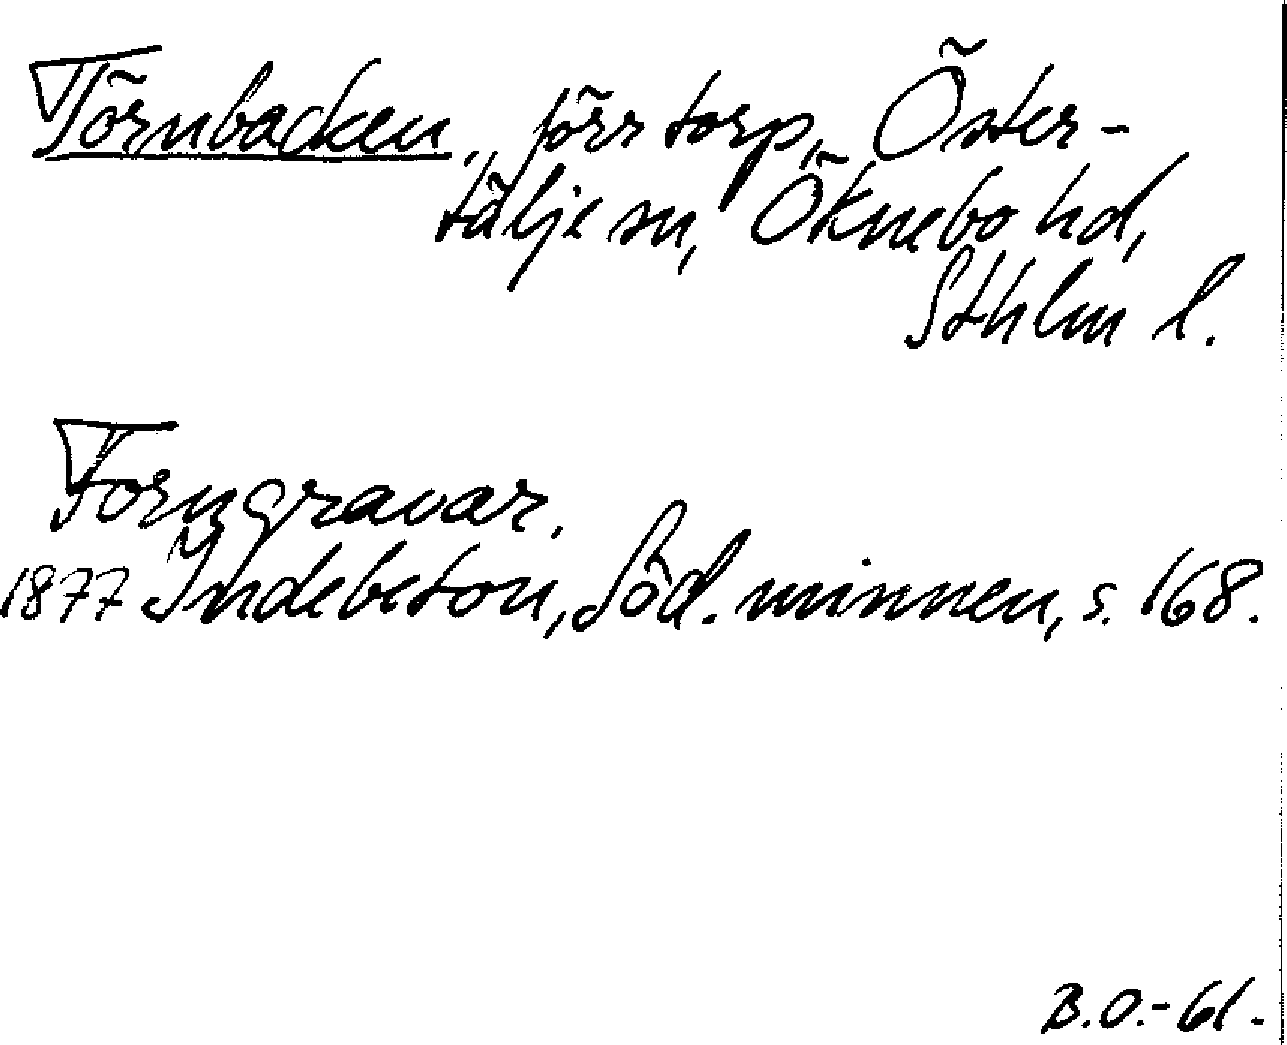 Törnbacken, förr torp, Öster-
tälje sn, Öknebo hd,
Sthlm l.
Forngravar.
1877 Indebetou, Söd. minnen, s. 168.
B.O.-61.